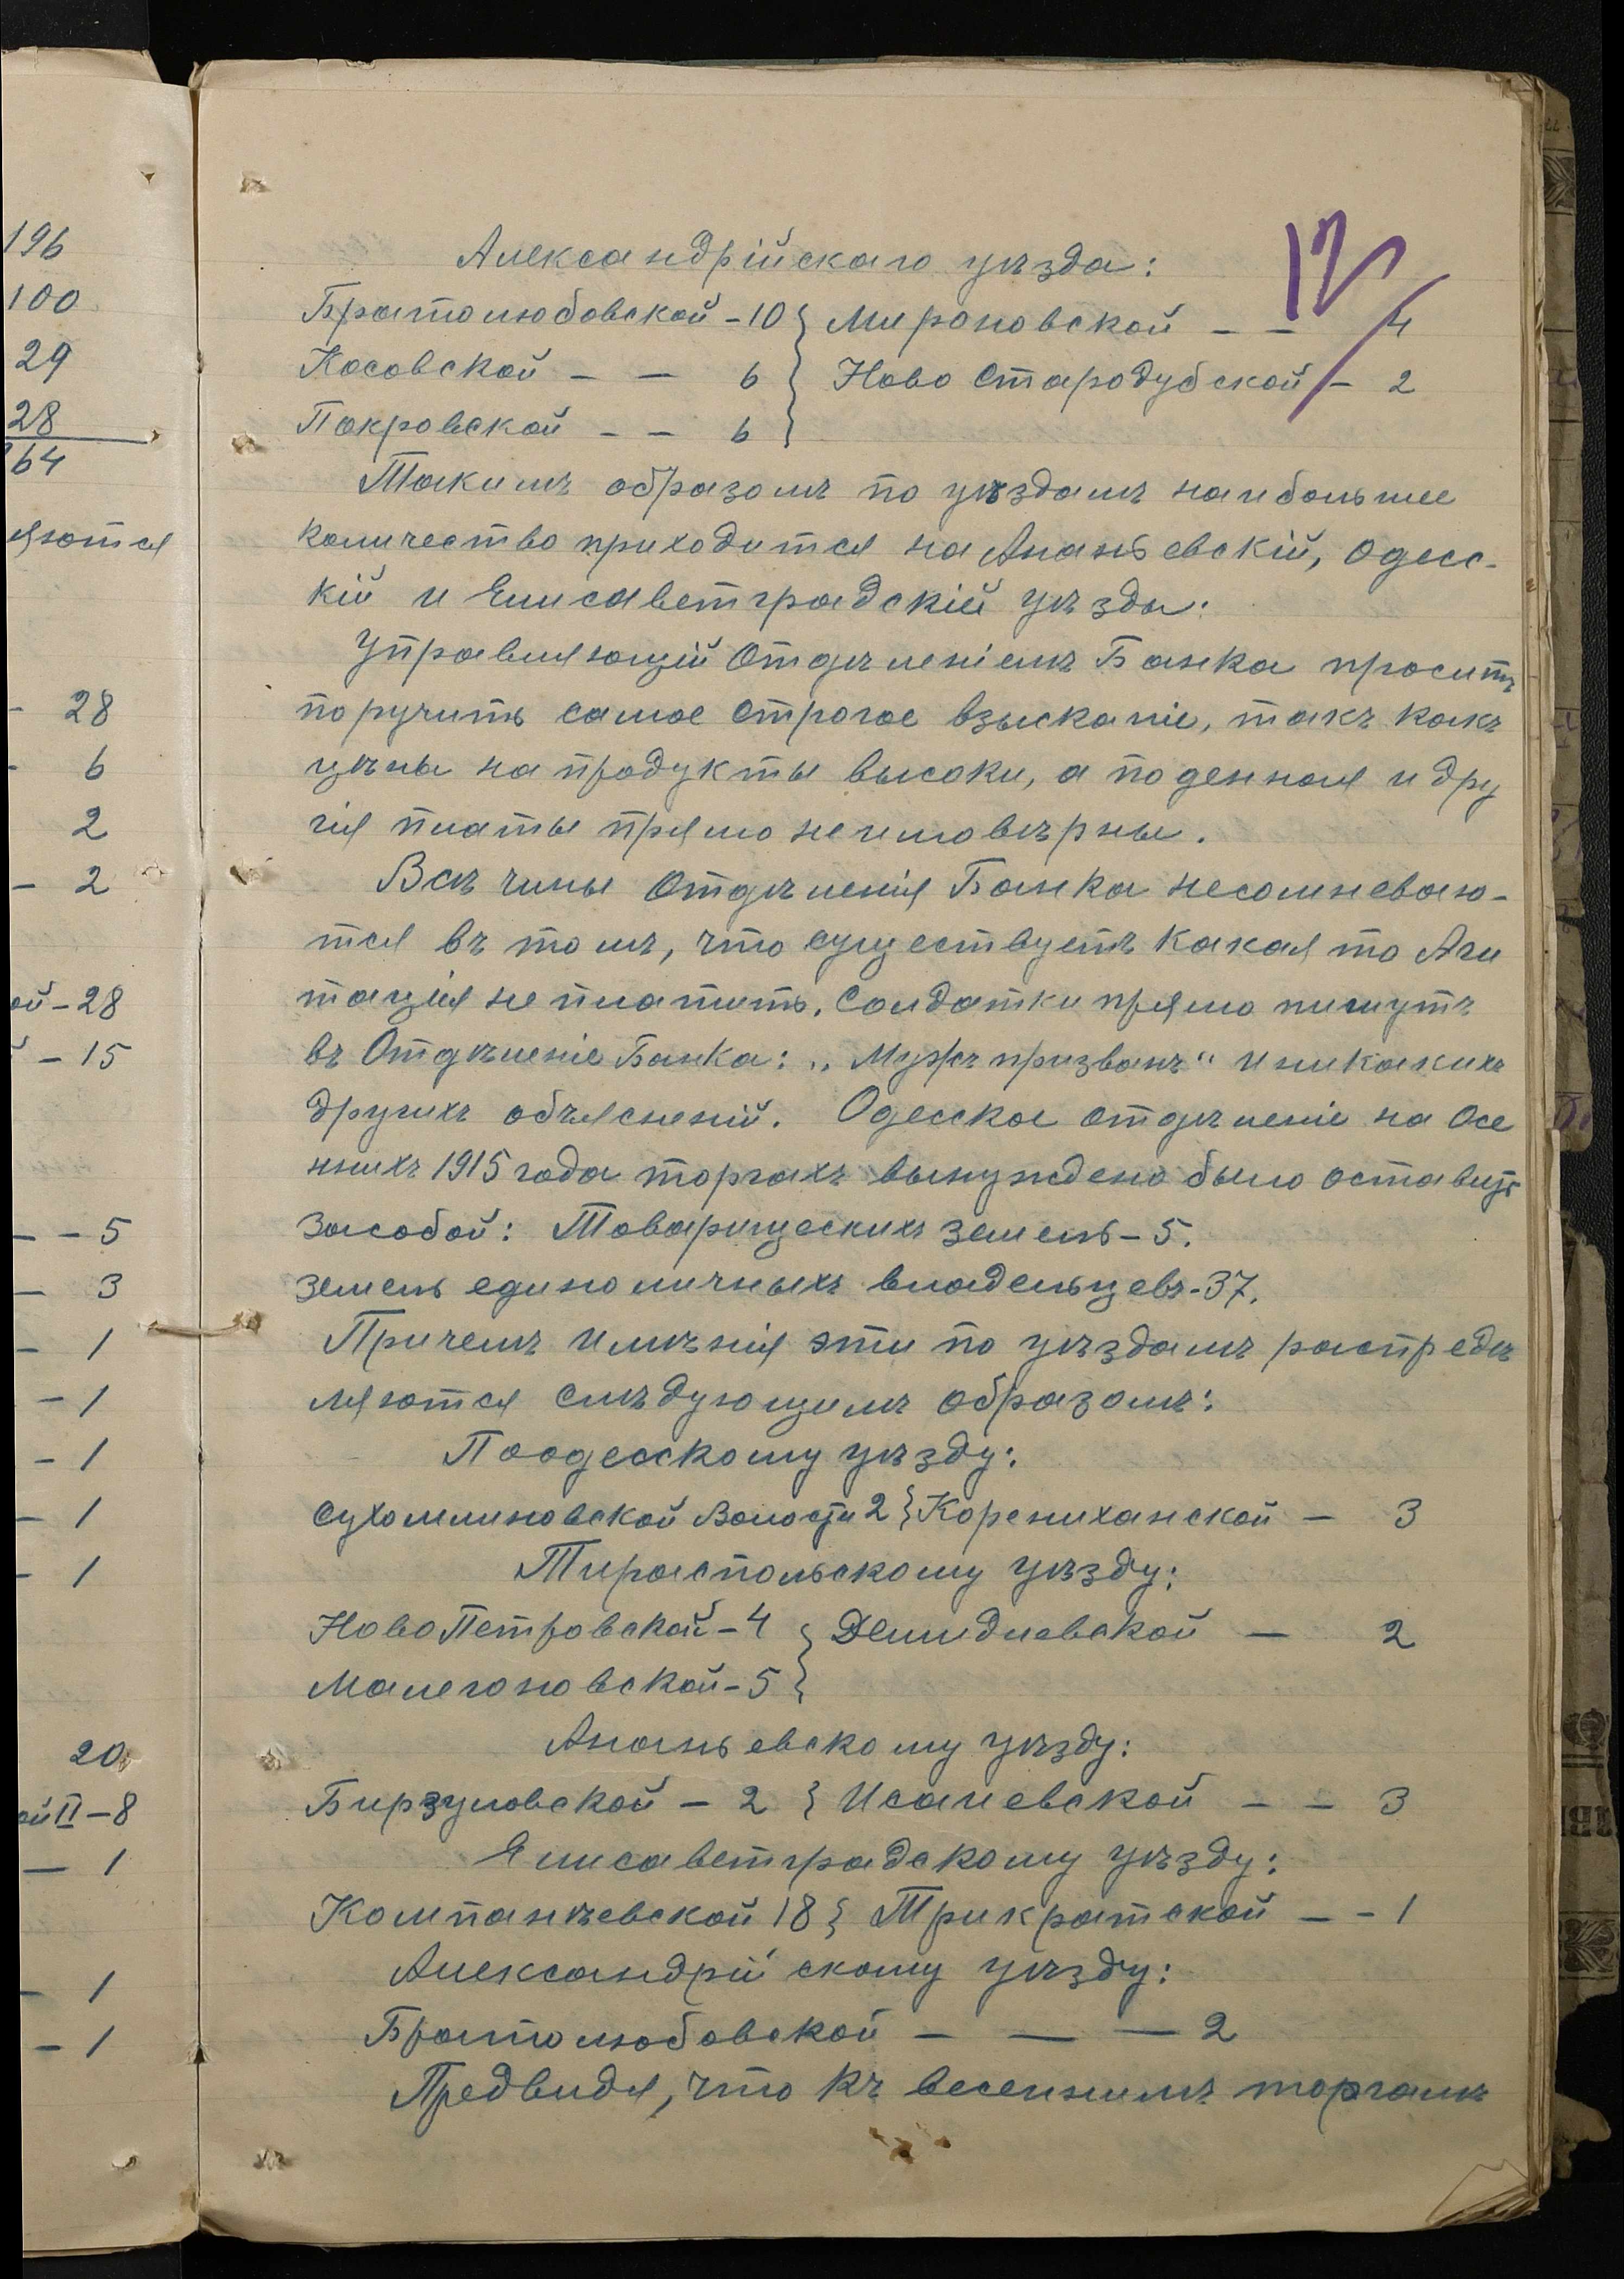 196
100
29
28
764
ляются
- 28
- 6
2
- 2
ой - 28
й - 15
- - 5
- 3
- 1
- 1
- 1
- 1
- 1
20
ой II - 8
- 1
- 1
- 1
12
Александрійскаго уѣзда:
Братолюбовской - 10 } Мироновской - - 4
Косовской - - 6 } Ново Стародубской - 2
Покровской - - 6 }
Такимъ образомъ по уѣздамъ наибольшее
количество приходится на Ананьевскій, Одесс-
кій и Елисаветградскій уѣзды:
Управляющій Отдѣленіемъ Банка проситъ
поручить самое строгое взысканіе, такъ какъ
цѣны на продукты высоки, а поденная и дру
гія платы прямо неимовѣрны.
Всѣ чины Отдѣленія Банка несомневаю-
тся въ томъ, что существуетъ какая то Аги
тація не платить. Солдатки прямо пишутъ
въ Отдѣленіе Банка: „Мужъ призванъ" и никакихъ
другихъ объясненій. Одесское отдѣленіе на Осе
ннихъ 1915 года торгахъ вынуждено было оставить
Засобой: Товарищескихъ земель - 5.
Земель единоличныхъ владельцевъ - 37.
Причемъ имѣнія эти по уѣздамъ распредѣ
ляются слѣдующимъ образомъ:
Поодесскому уѣзду:
Сухомлиновской Волости 2 } Корениханской - 3
Тираспольскому уѣзду:
Ново Петровской - 4 } Демидиевской - 2
Малегоновской - 5 }
Ананьевскому уѣзду:
Бирзуловской - 2 } Исаиевской - - 3
Елисаветградскому уѣзду:
Компанѣевской 18 } Трикратской - - 1
Александрійскому уѣзду:
Братолюбовской - - - 2
Предвидя, что къ весеннимъ торгамъ